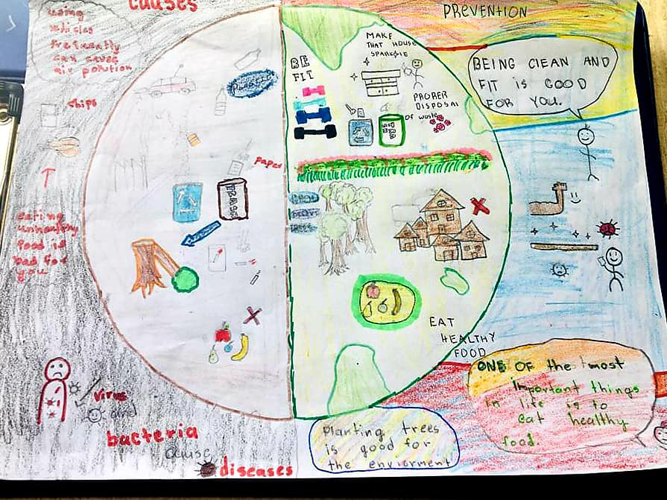 causes
using
vehicles
frequently
can cause
air polution
chips
eating
unhealthy
food is
bad for
you
paper
virus
and
bacteria
cause
diseases
PREVENTION
BE
FIT
MAKE
THAT HOUSE
SPARKLE
PROPER
DISPOSAL
OF waste
BEING CLEAN AND
FIT is GOOD
FOR YOU.
EAT
HEALTHY
FOOD
ONE OF the most
Important things
in life is to
eat healthy
food.
planting trees
is good for
the enviorment